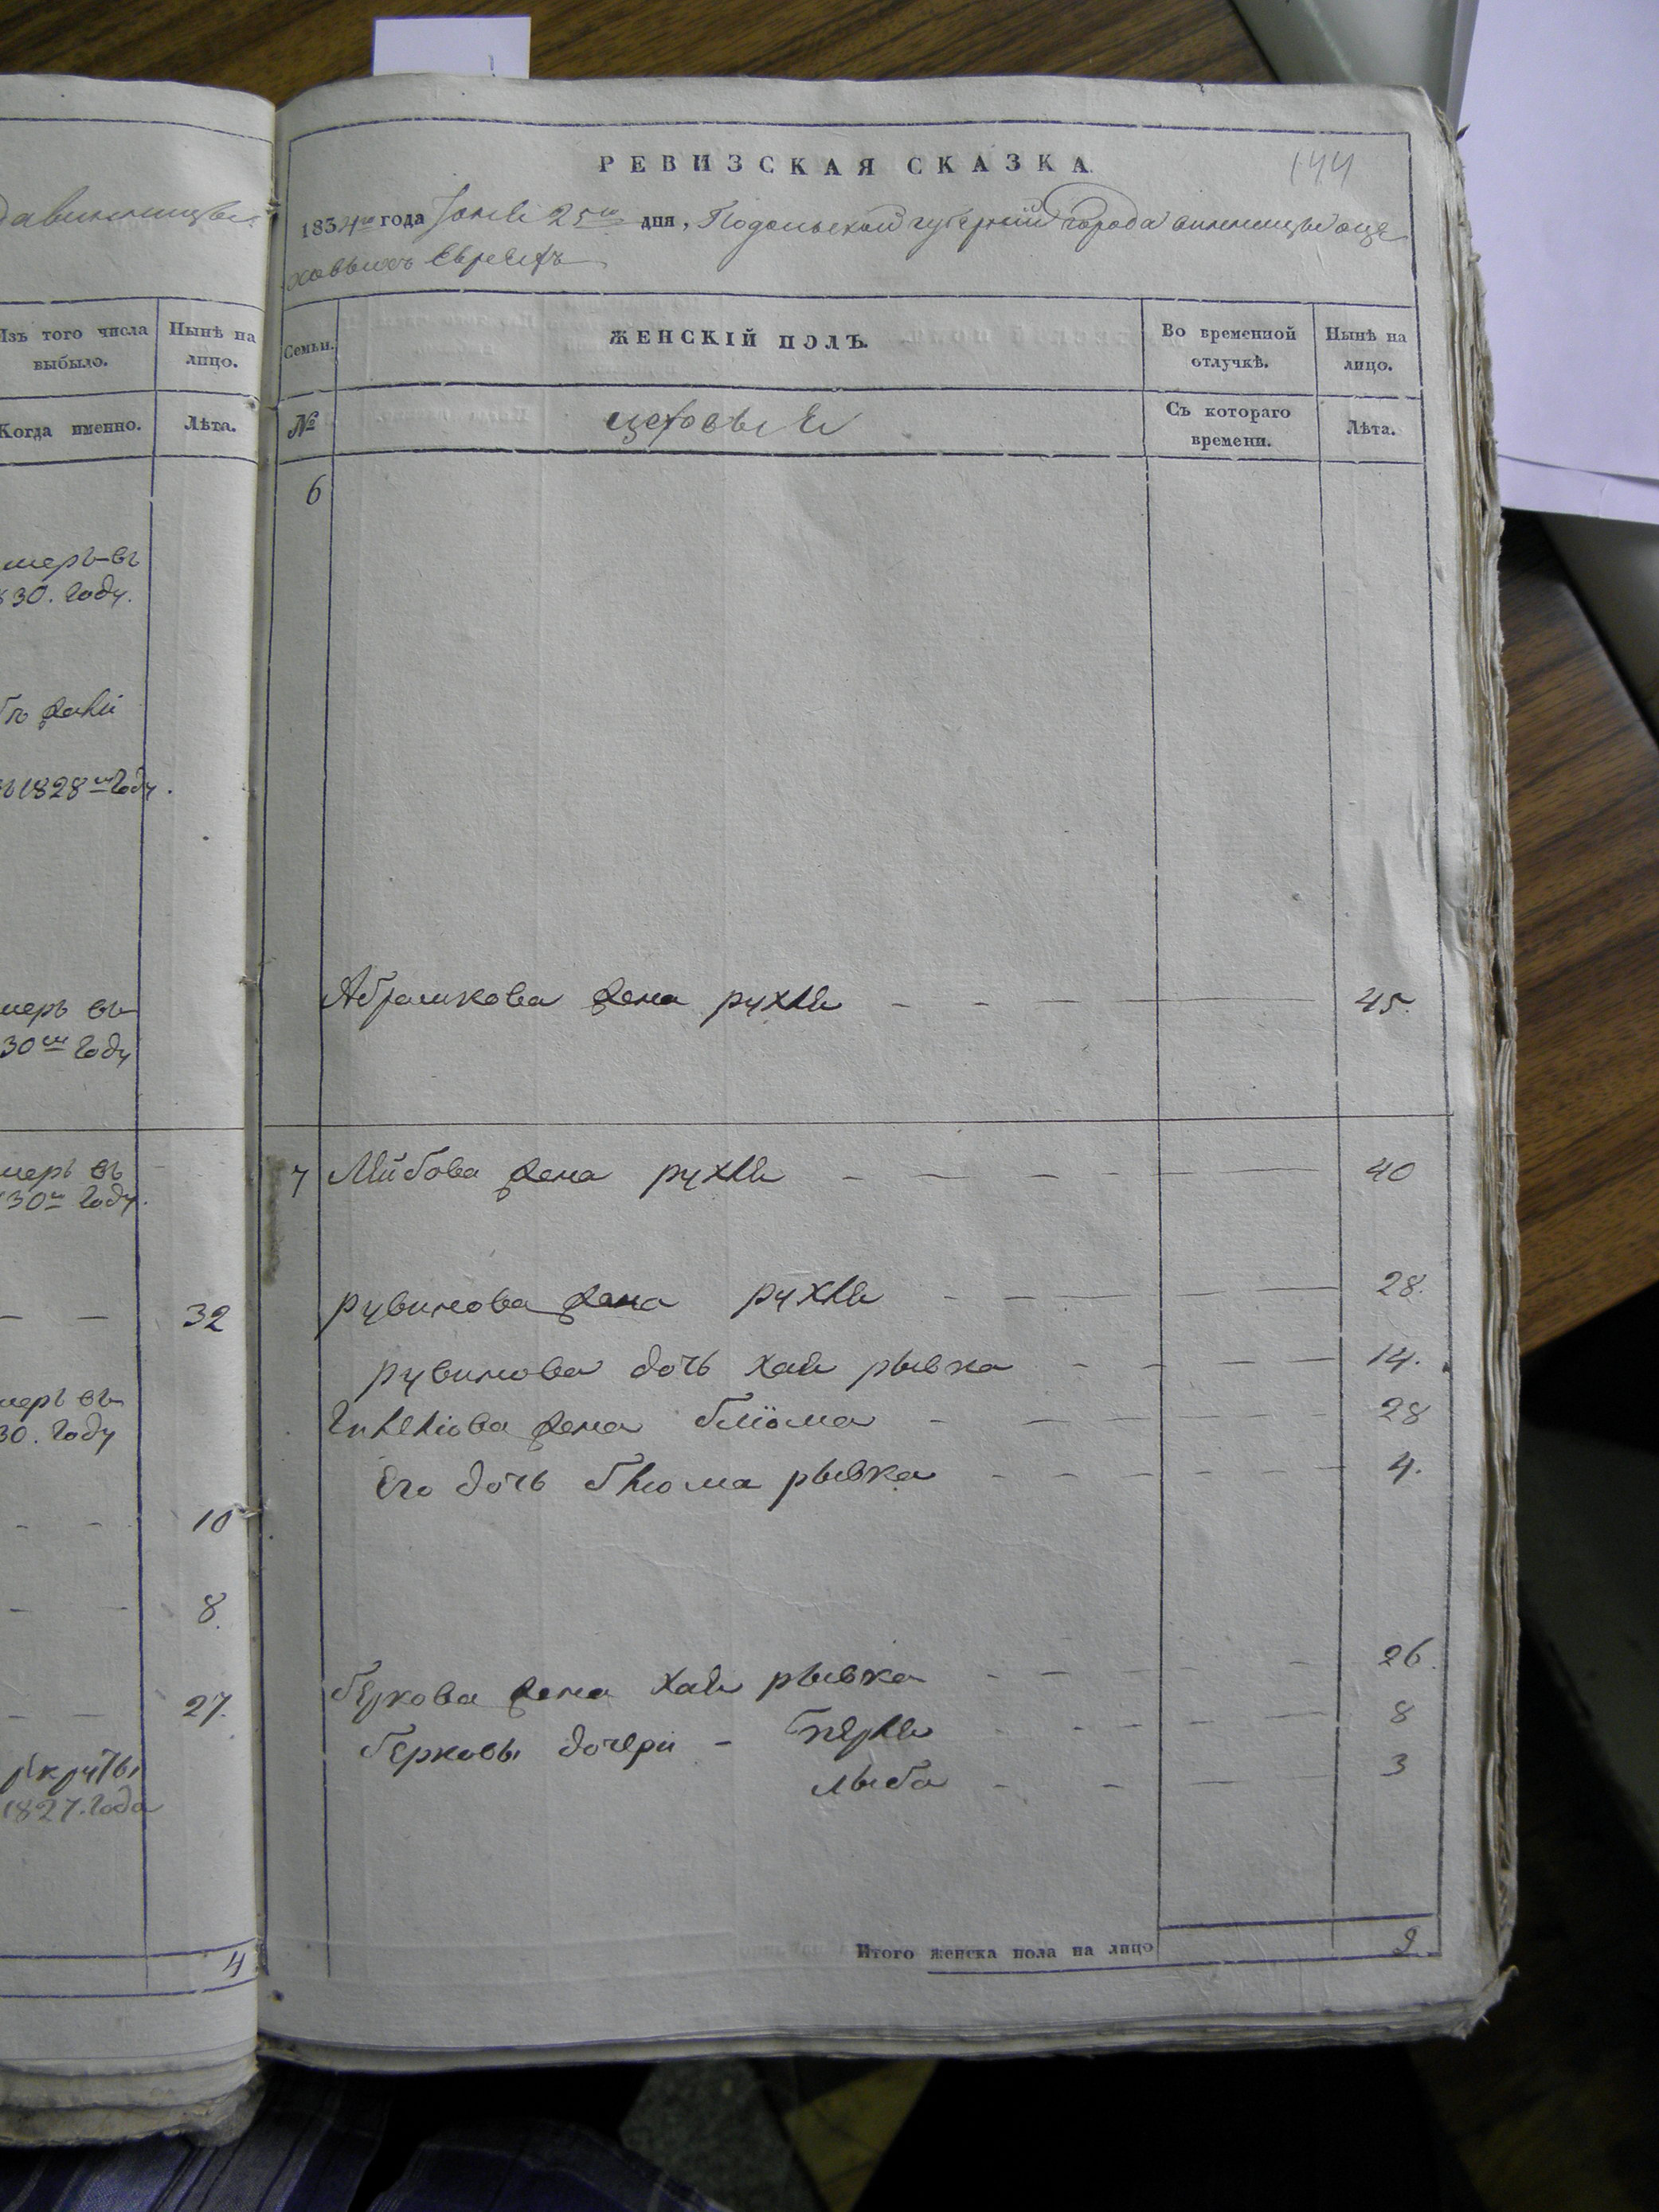 РЕВИЗСКАЯ СКАЗКА.
144
1834го года Іюня 25го дня, Подольской губерніи города винницы оцѣ
ховыхъ Евреяхъ
Изъ того числа выбыло.
Нынѣ на лицо.
Когда именно.
Лѣта.
Семьи.
ЖЕНСКІЙ ПОЛЪ.
Во временной отлучкѣ.
Нынѣ на лицо.
№
цеховые
Съ котораго времени.
Лѣта.
6
меръ въ
830. году.
1828го году.
Абрамкова жена рухля 45.
меръ въ
30го году
меръ въ
30го году.
7 Лейбова жена рухля 40
32
рувинова жена рухля 28.
рувинова дочь хая рывка 14.
меръ въ
30. году
жена блюма 28
Его дочь блюма рывка 4.
10
8.
27.
беркова жена хая рывка 26.
берковы дочери - перля 8
лыба 3
рекруты
1827. года
4
Итого женска пола на лицо 9.